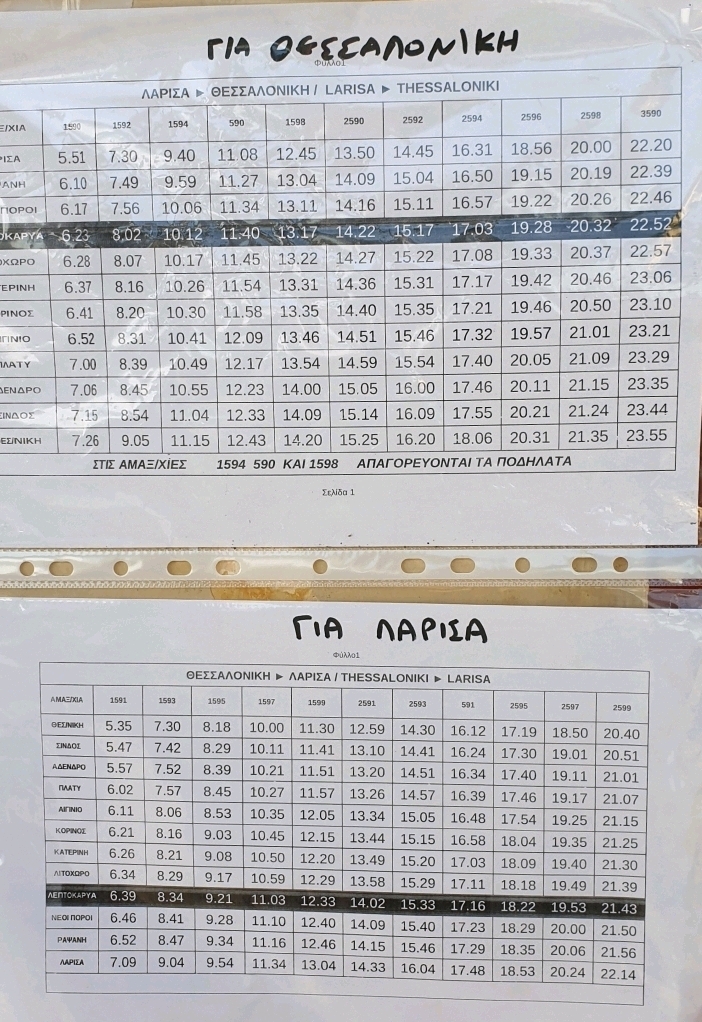 ΓΙΑ ΘΕΣΣΑΛΟΝΙΚΗ
Φύλλο1
ΛΑΡΙΣΑ ► ΘΕΣΣΑΛΟΝΙΚΗ / LARISA ► THESSALONIKI
Ξ/ΧΙΑ 1590 1592 1594 590 1598 2590 2592 2594 2596 2598 3590
ΡΙΣΑ 5.51 7.30 9.40 11.08 12.45 13.50 14.45 16.31 18.56 20.00 22.20
ΑΝΗ 6.10 7.49 9.59 11.27 13.04 14.09 15.04 16.50 19.15 20.19 22.39
ΠΟΡΟΙ 6.17 7.56 10.06 11.34 13.11 14.16 15.11 16.57 19.22 20.26 22.46
ΟΚΑΡΥΑ 6.23 8.02 10.12 11.40 13.17 14.22 15.17 17.03 19.28 20.32 22.52
ΟΧΩΡΟ 6.28 8.07 10.17 11.45 13.22 14.27 15.22 17.08 19.33 20.37 22.57
ΤΕΡΙΝΗ 6.37 8.16 10.26 11.54 13.31 14.36 15.31 17.17 19.42 20.46 23.06
ΡΙΝΟΣ 6.41 8.20 10.30 11.58 13.35 14.40 15.35 17.21 19.46 20.50 23.10
ΓΙΝΙΟ 6.52 8.31 10.41 12.09 13.46 14.51 15.46 17.32 19.57 21.01 23.21
ΛΑΤΥ 7.00 8.39 10.49 12.17 13.54 14.59 15.54 17.40 20.05 21.09 23.29
ΔΕΝΔΡΟ 7.06 8.45 10.55 12.23 14.00 15.05 16.00 17.46 20.11 21.15 23.35
ΣΙΝΔΟΣ 7.15 8.54 11.04 12.33 14.09 15.14 16.09 17.55 20.21 21.24 23.44
ΕΣ/ΝΙΚΗ 7.26 9.05 11.15 12.43 14.20 15.25 16.20 18.06 20.31 21.35 23.55
ΣΤΙΣ ΑΜΑΞ/ΧΙΕΣ 1594 590 ΚΑΙ 1598 ΑΠΑΓΟΡΕΥΟΝΤΑΙ ΤΑ ΠΟΔΗΛΑΤΑ
Σελίδα 1
ΓΙΑ ΛΑΡΙΣΑ
Φύλλο1
ΘΕΣΣΑΛΟΝΙΚΗ ► ΛΑΡΙΣΑ / THESSALONIKI ► LARISA
ΑΜΑΞ/ΧΙΑ 1591 1593 1595 1597 1599 2591 2593 591 2595 2597 2599
ΘΕΣ/ΝΙΚΗ 5.35 7.30 8.18 10.00 11.30 12.59 14.30 16.12 17.19 18.50 20.40
ΣΙΝΔΟΣ 5.47 7.42 8.29 10.11 11.41 13.10 14.41 16.24 17.30 19.01 20.51
ΑΔΕΝΔΡΟ 5.57 7.52 8.39 10.21 11.51 13.20 14.51 16.34 17.40 19.11 21.01
ΠΛΑΤΥ 6.02 7.57 8.45 10.27 11.57 13.26 14.57 16.39 17.46 19.17 21.07
ΑΙΓΙΝΙΟ 6.11 8.06 8.53 10.35 12.05 13.34 15.05 16.48 17.54 19.25 21.15
ΚΟΡΙΝΟΣ 6.21 8.16 9.03 10.45 12.15 13.44 15.15 16.58 18.04 19.35 21.25
ΚΑΤΕΡΙΝΗ 6.26 8.21 9.08 10.50 12.20 13.49 15.20 17.03 18.09 19.40 21.30
ΛΙΤΟΧΩΡΟ 6.34 8.29 9.17 10.59 12.29 13.58 15.29 17.11 18.18 19.49 21.39
ΛΕΠΤΟΚΑΡΥΑ 6.39 8.34 9.21 11.03 12.33 14.02 15.33 17.16 18.22 19.53 21.43
ΝΕΟΙ ΠΟΡΟΙ 6.46 8.41 9.28 11.10 12.40 14.09 15.40 17.23 18.29 20.00 21.50
ΡΑΨΑΝΗ 6.52 8.47 9.34 11.16 12.46 14.15 15.46 17.29 18.35 20.06 21.56
ΛΑΡΙΣΑ 7.09 9.04 9.54 11.34 13.04 14.33 16.04 17.48 18.53 20.24 22.14